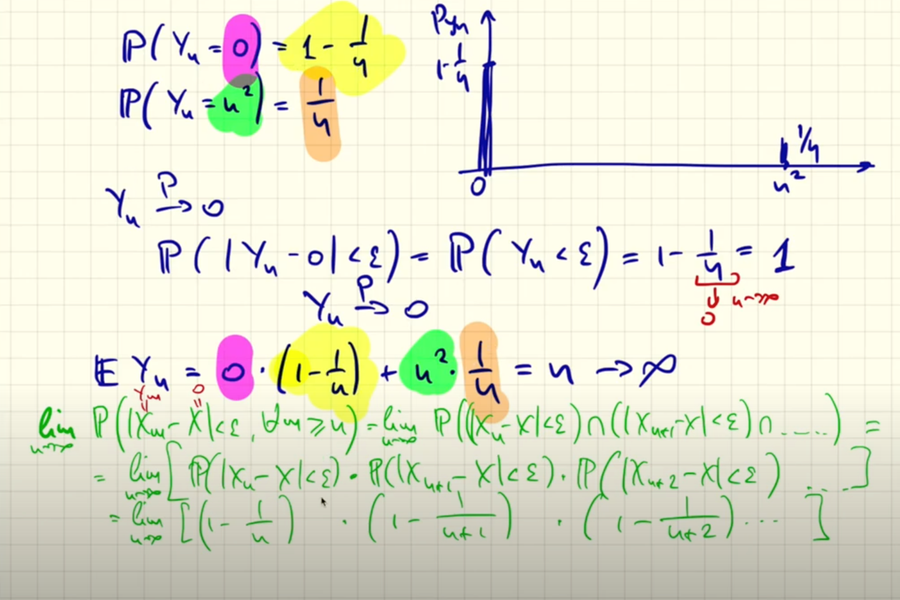 ℙ(Yₙ = 0) = 1 - 1/n
ℙ(Yₙ = n²) = 1/n
P_Yn
1-1/n
1/n
0
n²
Yₙ →ᴾ 0
ℙ(|Yₙ - 0| < ε) = ℙ(Yₙ < ε) = 1 - 1/n = 1
↓ n→∞
0
Yₙ →ᴾ 0
𝔼 Yₙ = 0 · (1 - 1/n) + n² · 1/n = n → ∞
Yₘ 0
lim n→∞ ℙ(|Xₘ - X| < ε, ∀m ≥ n) = lim n→∞ ℙ((|Xₙ - X| < ε) ∩ (|Xₙ₊₁ - X| < ε) ∩ .....) =
= lim n→∞ [ℙ(|Xₙ - X| < ε) · ℙ(|Xₙ₊₁ - X| < ε) · ℙ(|Xₙ₊₂ - X| < ε) .....]
= lim n→∞ [(1 - 1/n) · (1 - 1/(n+1)) · (1 - 1/(n+2)) ...]